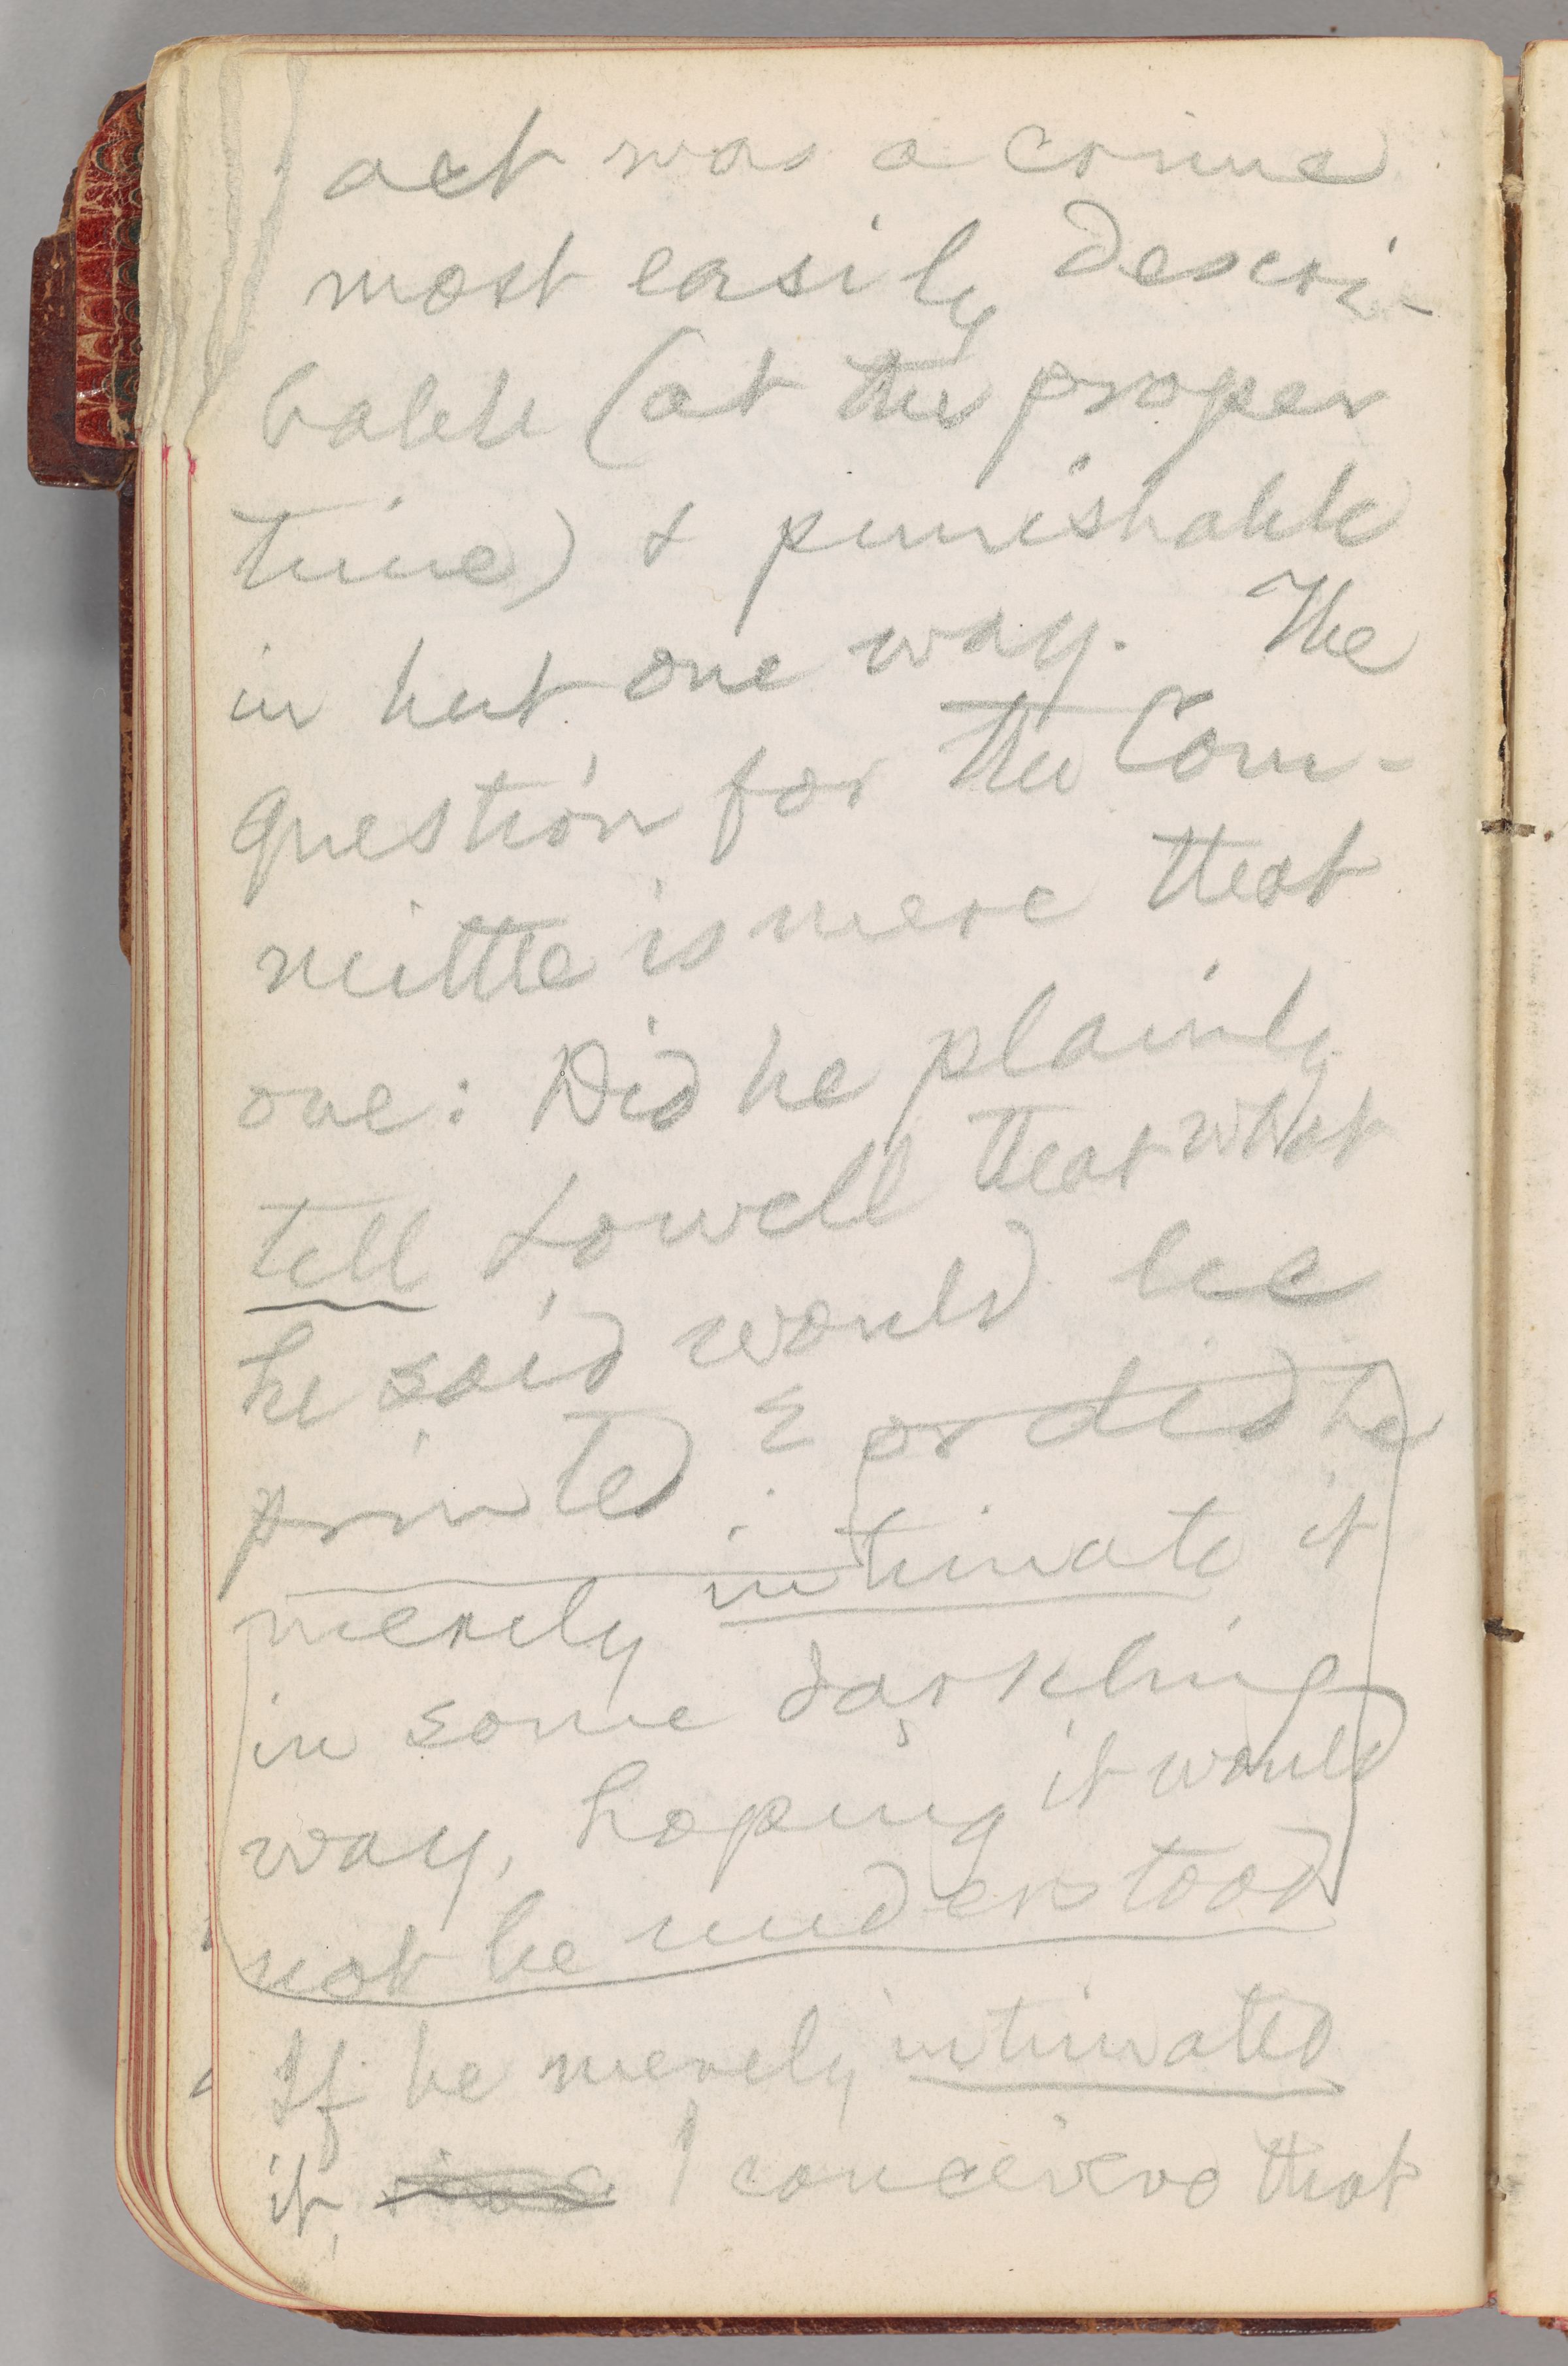 act was a crime
most easily descri-
bable (at the proper
time) & punishable
in but one way. The
question for the Com-
mittee is mere that
one: Did he plainly
tell Lowell that what
he said would be
printed? or did he
merely intimate it
in some darkling
way, hoping it would
not be understood
If he merely intimated
it, I conceive that